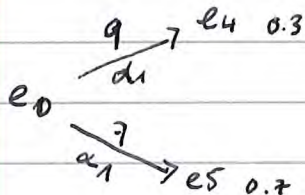 9 e4 0.3
α1
e0
7
α1 e5 0.7